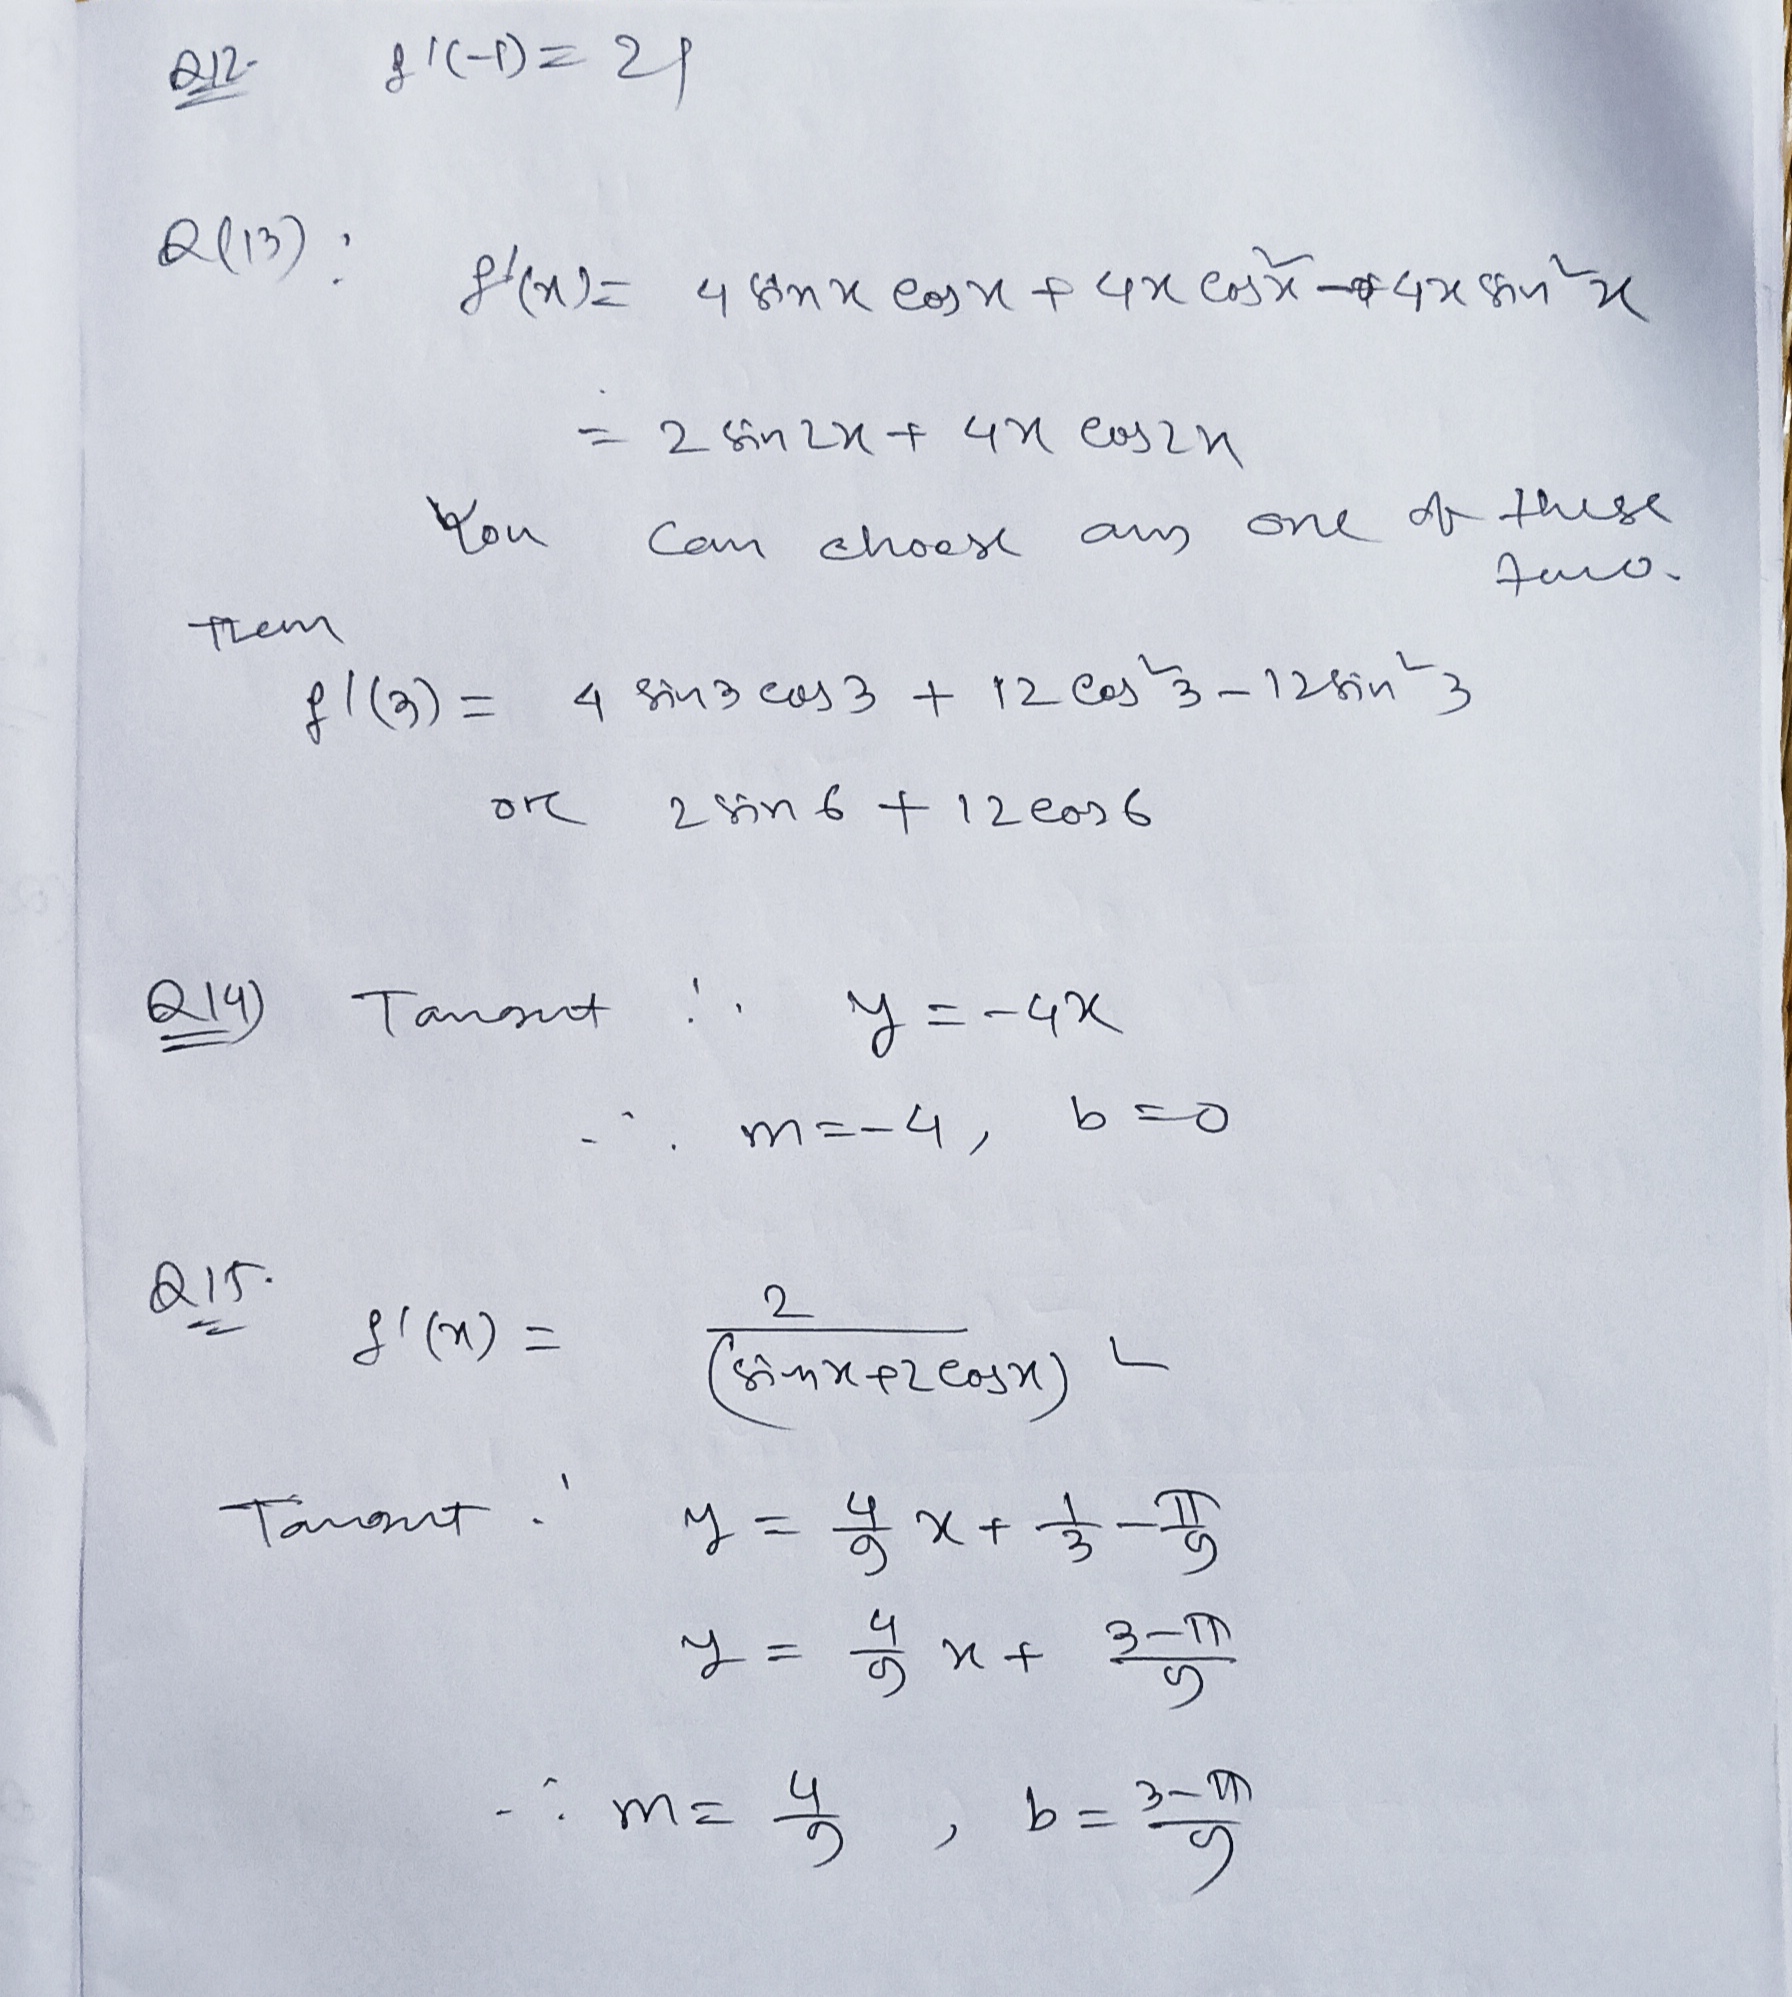 Q12. f'(-1) = 21
Q(13): f'(x) = 4 sinx cosx + 4x cos²x - 4x sin²x
= 2 sin2x + 4x cos2x
You can choose any one of these
two.
Then
f'(3) = 4 sin3 cos3 + 12 cos²3 - 12 sin²3
or 2 sin6 + 12 cos6
Q14) Tangent : y = -4x
∴ m = -4, b = 0
Q15. f'(x) = 2/(sinx + 2cosx)²
Tangent : y = 4/9 x + 1/3 - π/9
y = 4/9 x + (3-π)/9
∴ m = 4/9 , b = (3-π)/9